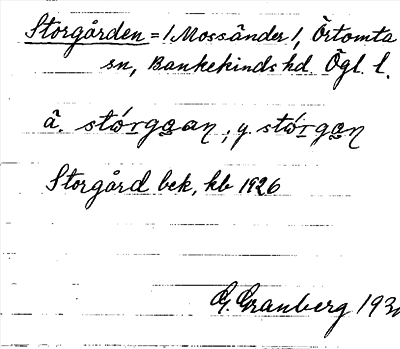 Storgården = / Mossänder /, Örtomta
sn, Bankekinds hd Ögl. l.
ä. stórgaan, y. stórgan
Storgård bek, kb 1926
G. Granberg 193